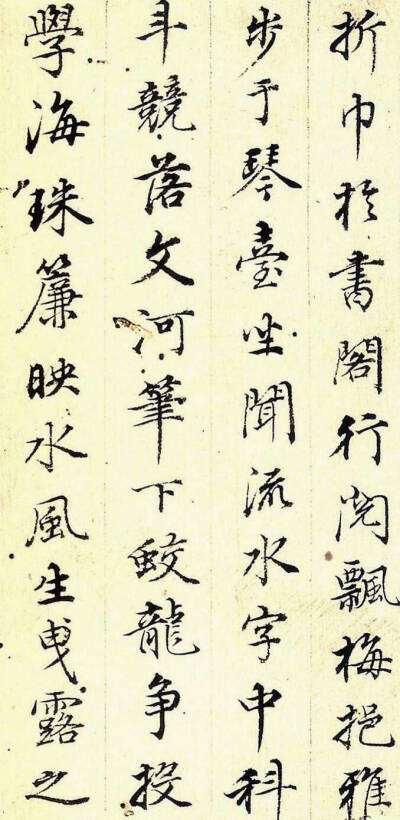 折巾於書閣行閱飄梅挹雅
步于琴臺坐聞流水字中科
斗競落文河筆下蛟龍争投
學海珠簾映水風生曳露之